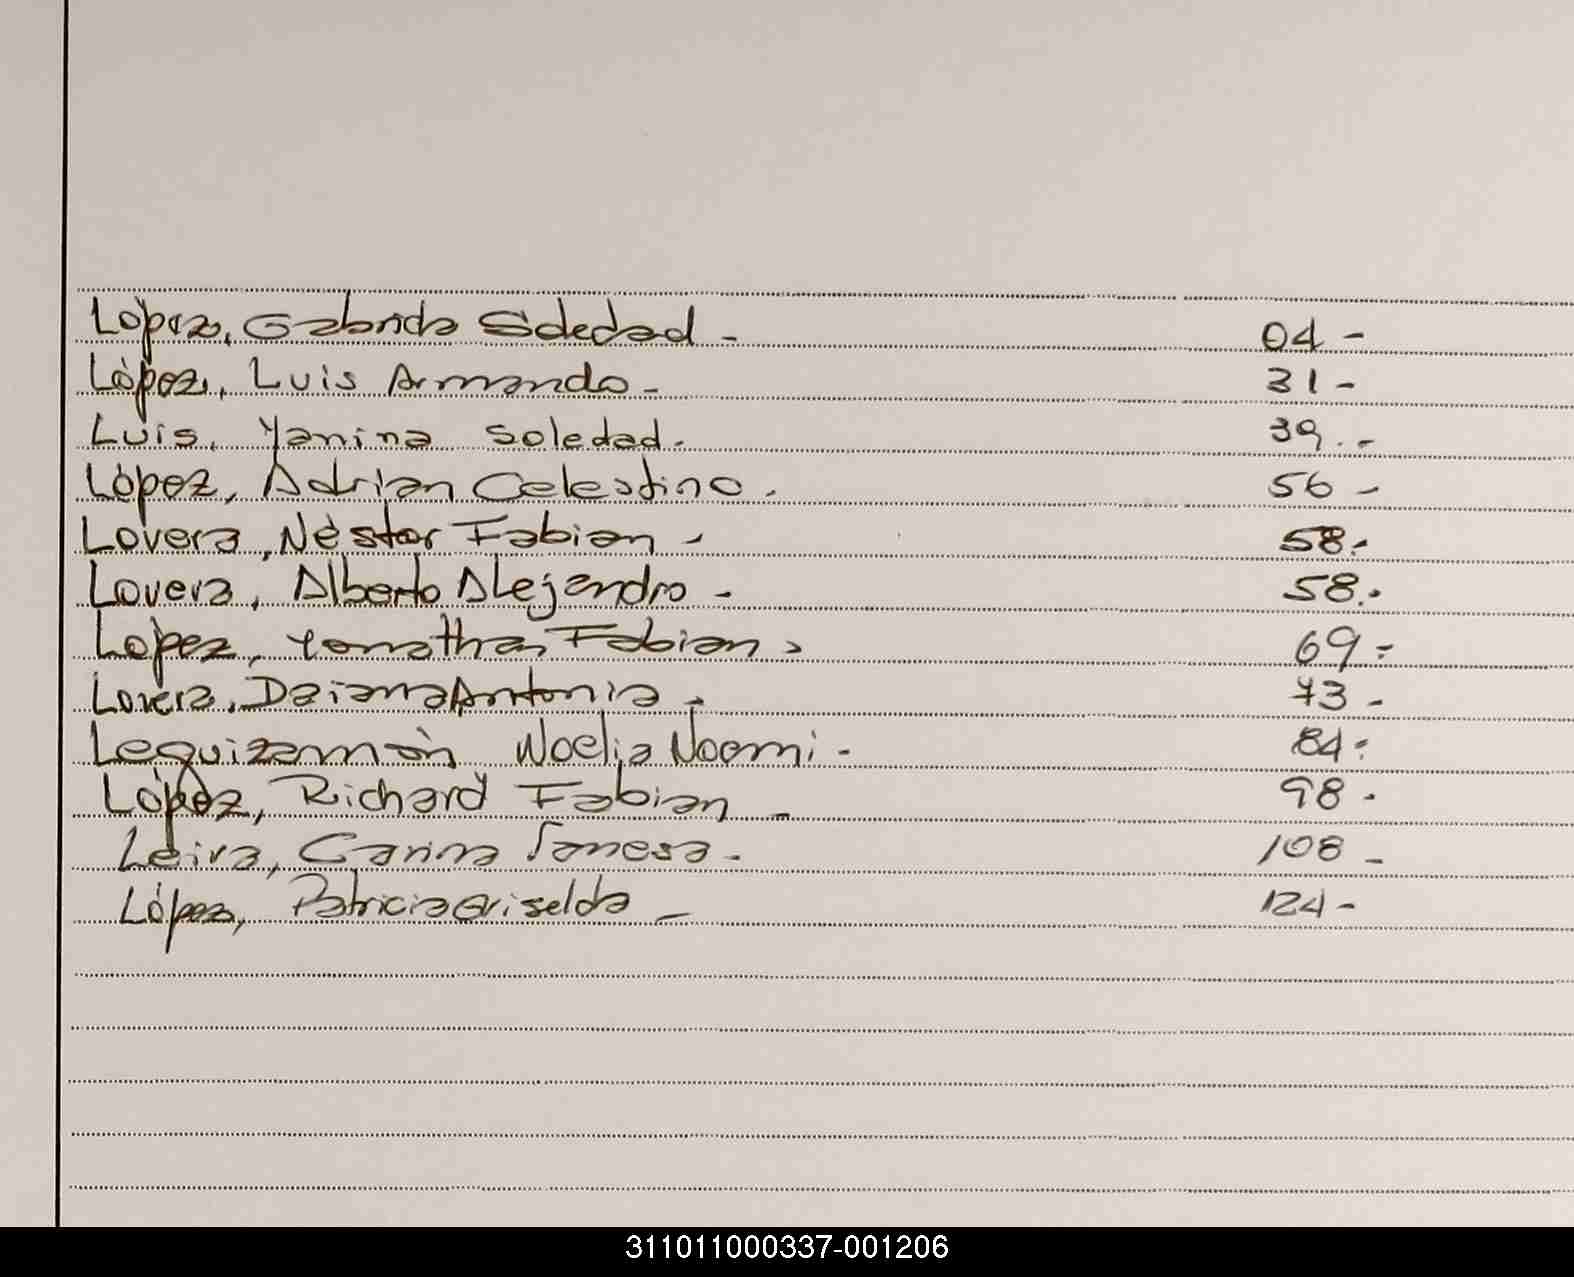 López, Gabriela Soledad - 04 -
López, Luis Armando - 31 -
Luis, Yanina Soledad. 39. -
López, Adrian Celestino. 56 -
Lovera, Néstor Fabian - 58.-
Lovera, Alberto Alejandro - 58.-
López, Yonathan Fabian - 69 -
Lovera, Daiana Antonia - 73 -
Leguizamón Noelia Noemi - 84 -
López, Richard Fabian - 98 -
Leiva, Carina Vanesa - 108 -
López, Patricia Griselda - 124 -
311011000337-001206